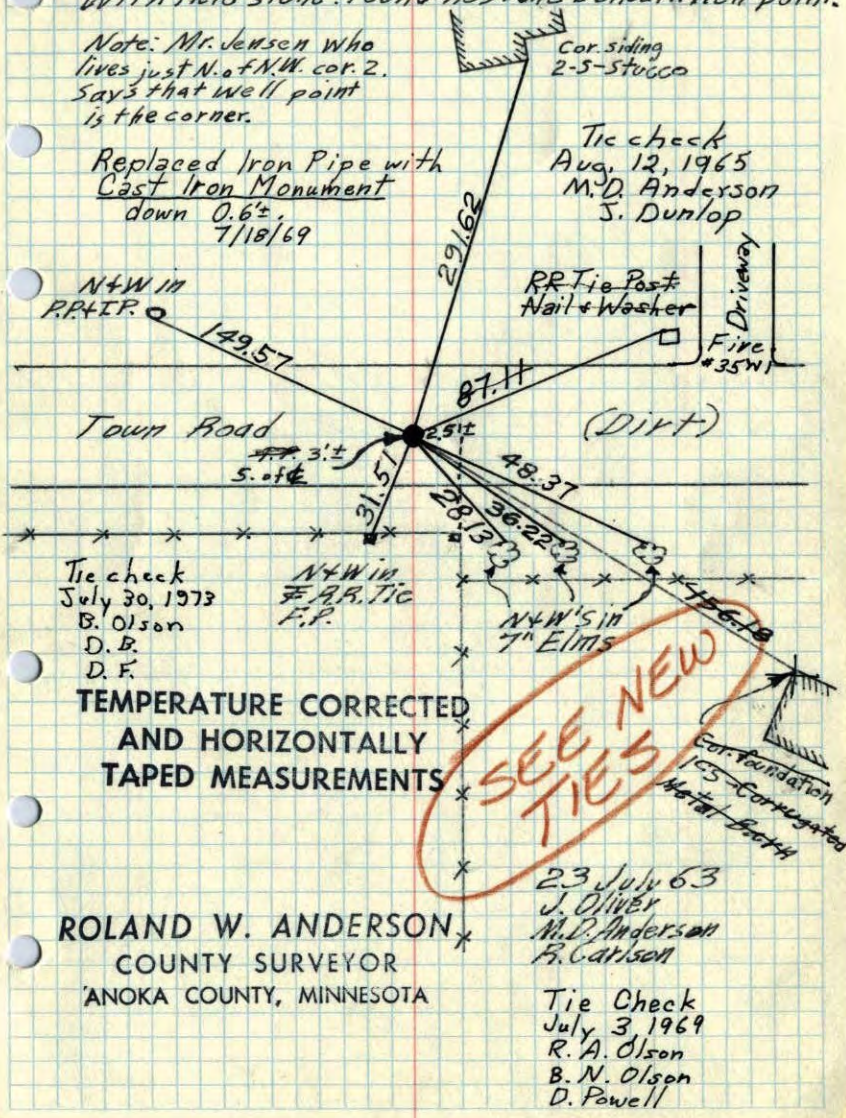 Note: Mr. Jensen who
lives just N. of N.W. cor. 2.
Says that well point
is the corner.
Cor. siding
2-S-Stucco
Replaced Iron Pipe with
Cast Iron Monument
down 0.6'±.
7/18/69
Tie check
Aug, 12, 1965
M.D. Anderson
J. Dunlop
291.62
N+W in
P.P.+I.P.
149.57
RR Tie Post
Nail + Washer
Driveway
Fire
#35W1
87.11
Town Road
(Dirt)
3'±
S. of ℄
2.5'±
31.51
28.13
36.22
48.37
156.18
Tie check
July 30, 1973
B. Olson
D. B.
D. F.
N+W in
R.R. Tie
F.P.
N+W's in
7" Elms
TEMPERATURE CORRECTED
AND HORIZONTALLY
TAPED MEASUREMENTS
SEE NEW
TIES
Cor. foundation
Corrugated
Metal
23 July 63
J. Oliver
M.D. Anderson
R. Carlson
ROLAND W. ANDERSON
COUNTY SURVEYOR
ANOKA COUNTY, MINNESOTA
Tie Check
July 3, 1969
R. A. Olson
B. N. Olson
D. Powell